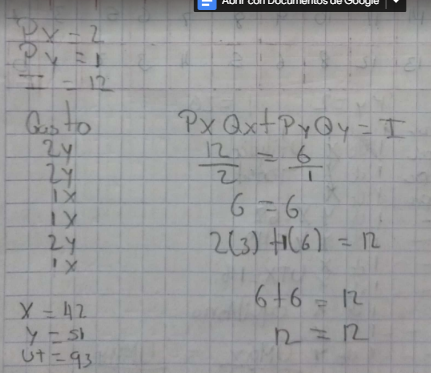 Abrir con Documentos de Google
Px = 2
Py = 1
I = 12
Gasto
2y
2y
1x
1x
2y
1x
X = 42
y = 51
UT = 93
PXQx+PyQy = I
12/2 = 6/1
6 = 6
2(3)+1(6) = 12
6+6 = 12
12 = 12